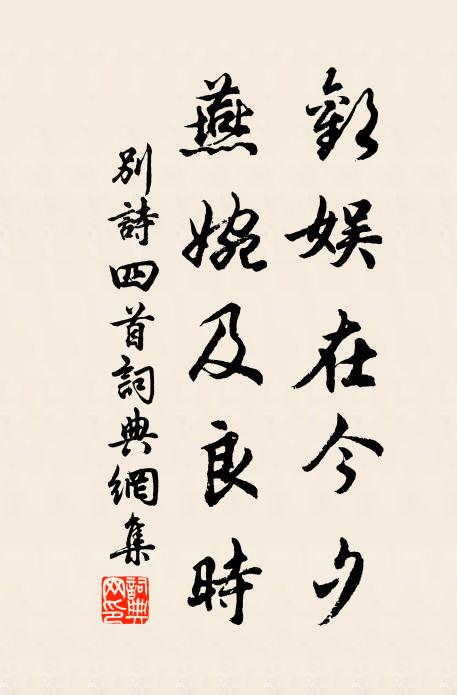 歡娛在今夕
燕婉及良時
別詩四首詞典網集
詞典網印